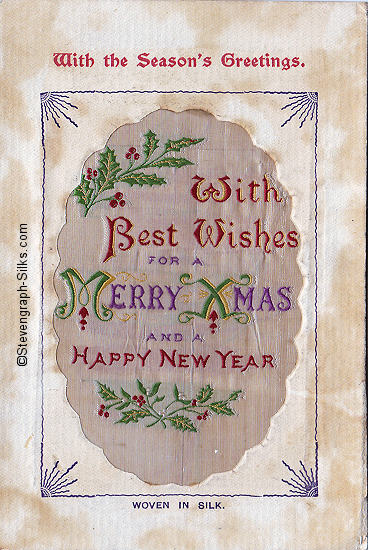 With the Season's Greetings.
With
Best Wishes
FOR A
MERRY XMAS
AND A
HAPPY NEW YEAR
WOVEN IN SILK.
©Stevengraph-Silks.com